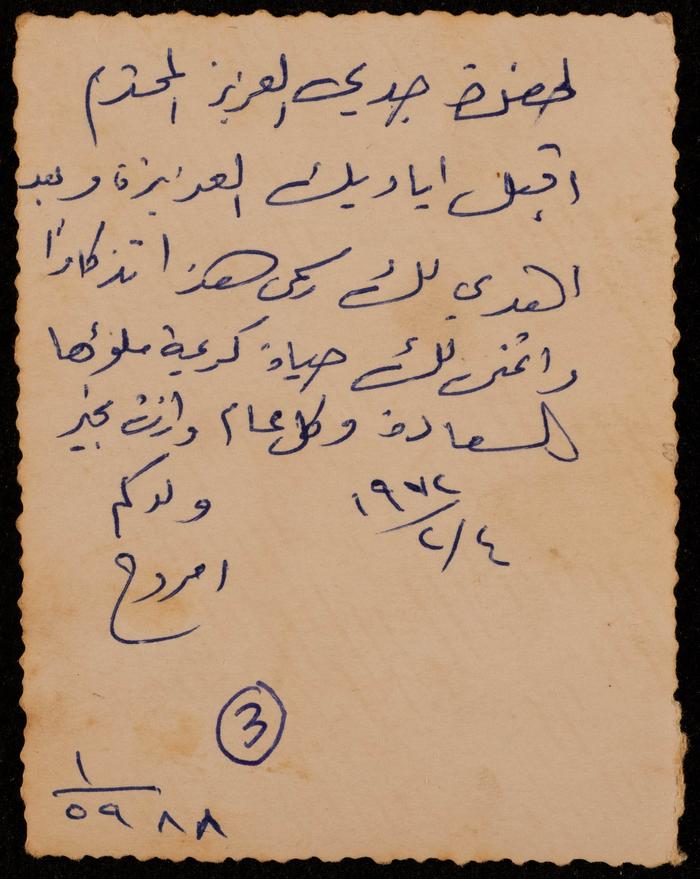 لحضرة جدي العزيز المحترم
اقبل اياديك العزيزة وبعد
اهدي لك رسمي هذا تذكارا
واتمنى لك حياة كريمة ملؤها
السعادة وكل عام وانت بخير
ولدكم
١٩٧٢/٢/٤
3
١
٥٩٨٨